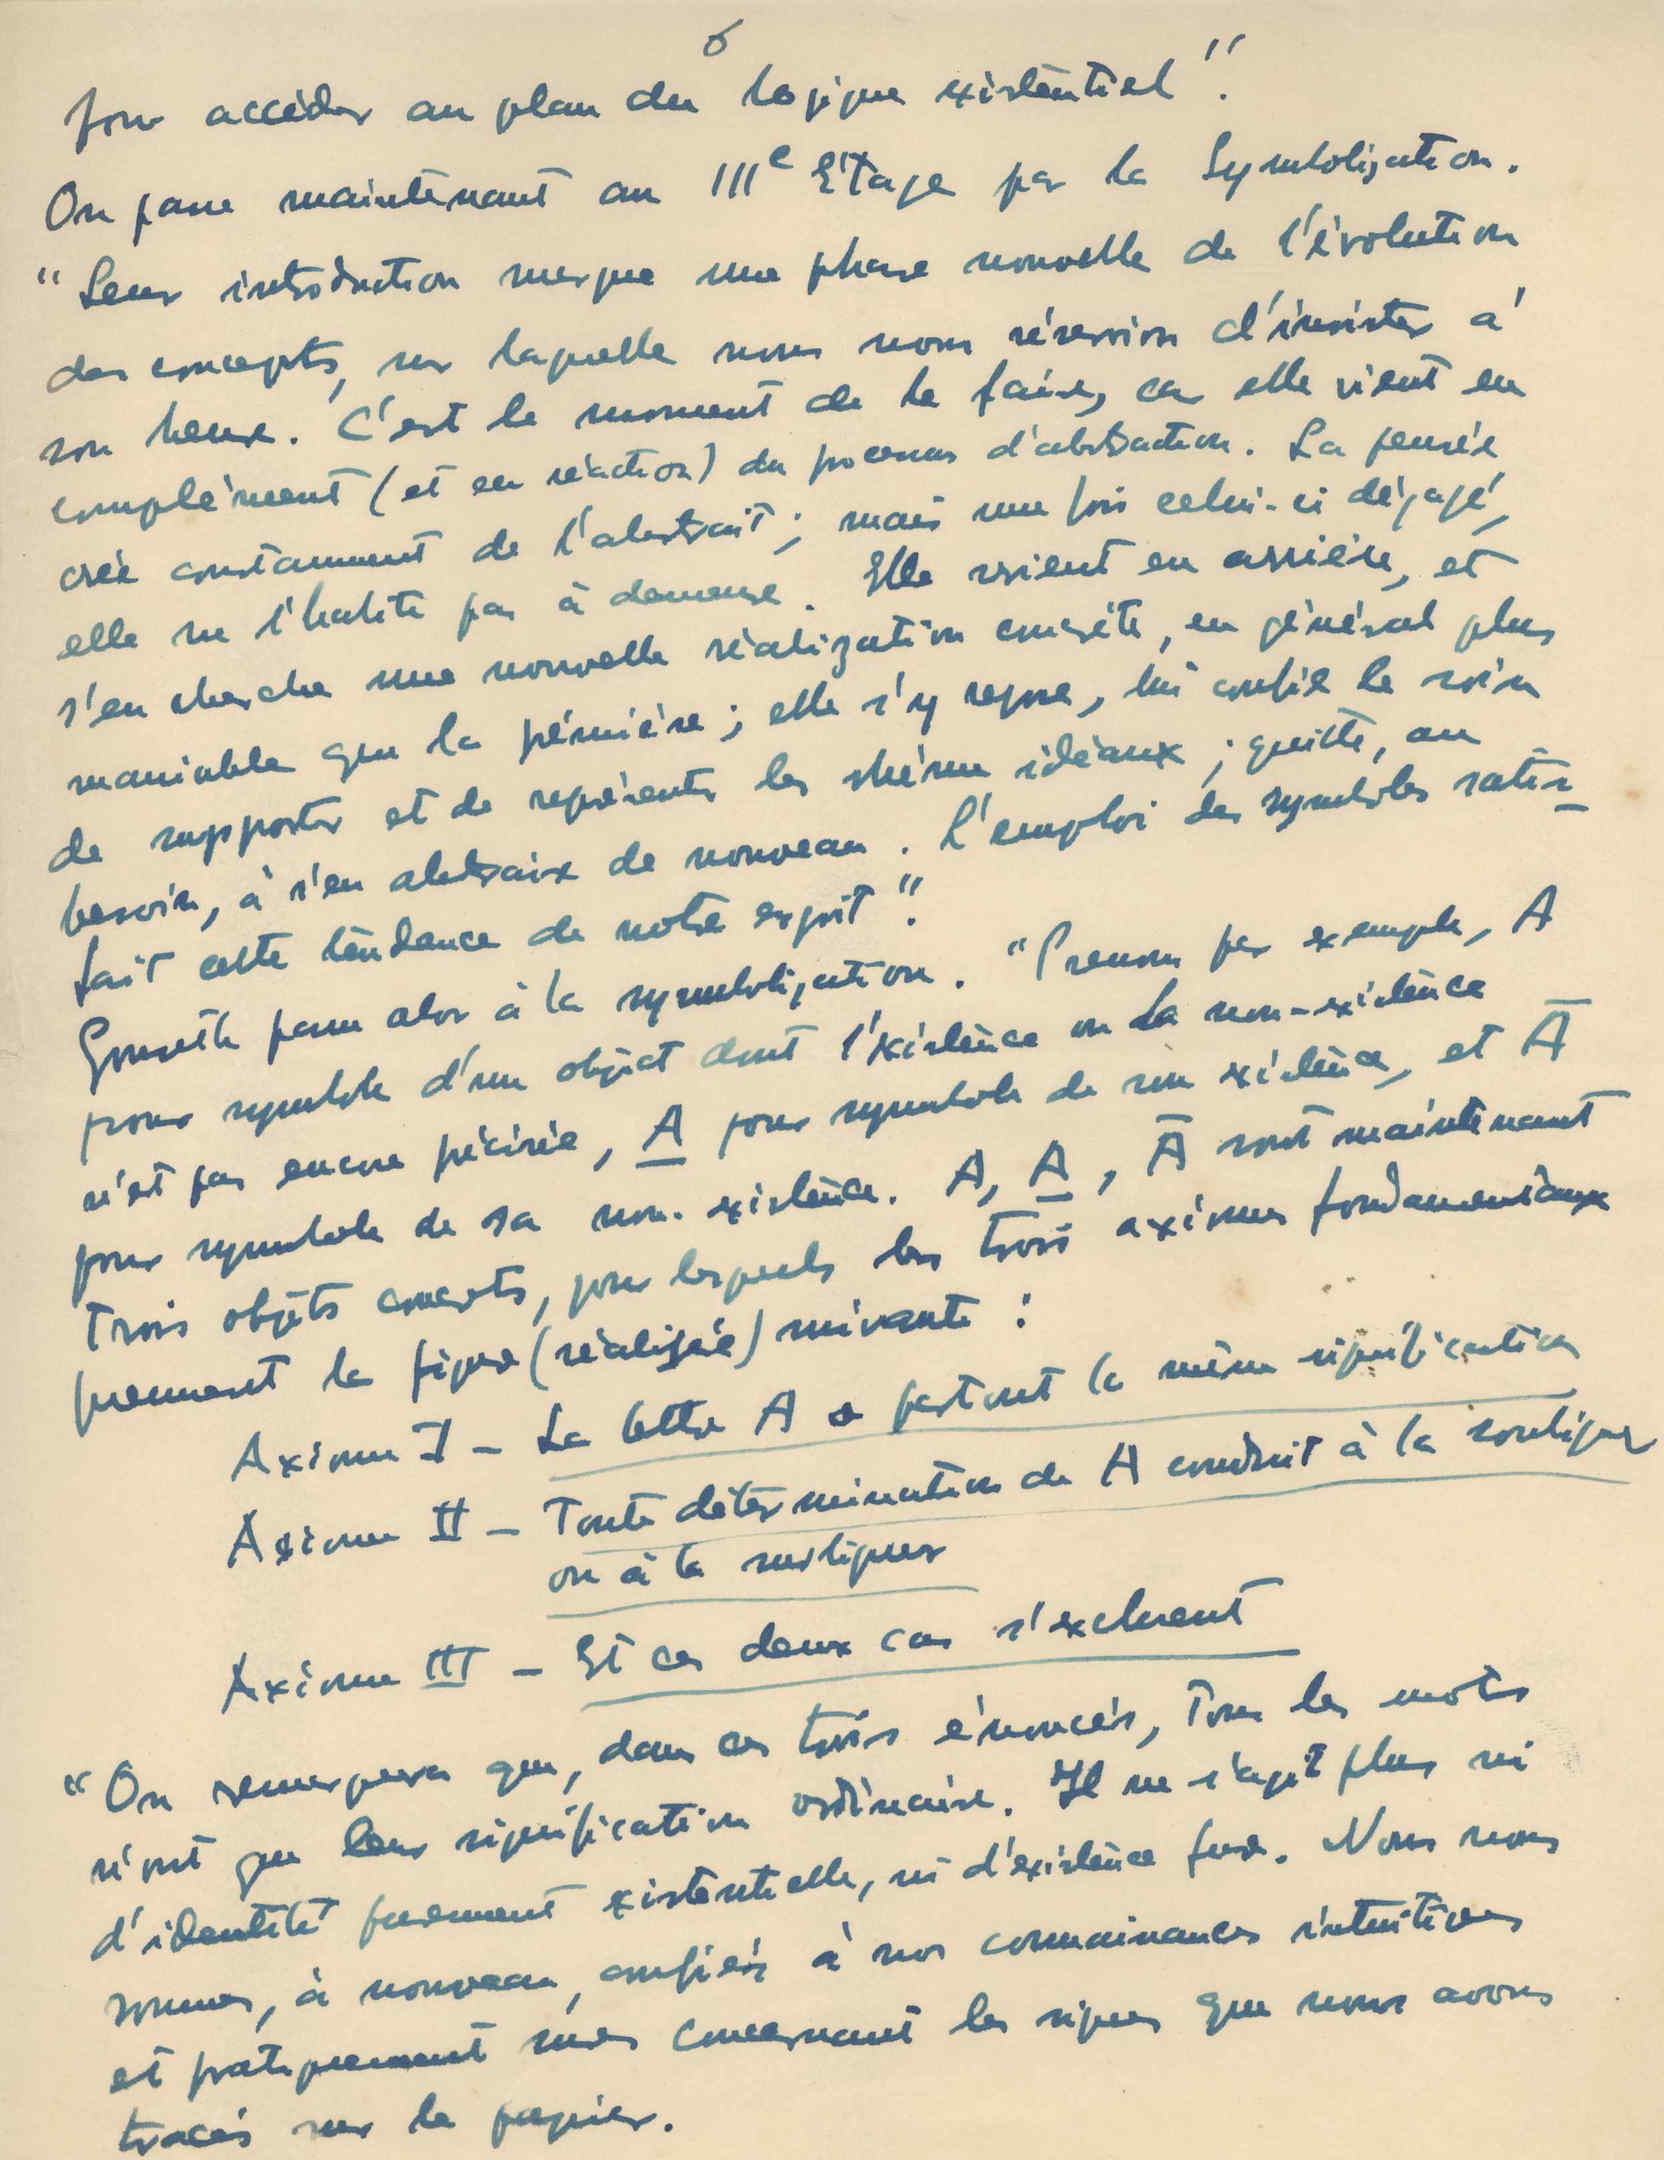 6
pour accéder au plan du logique existentiel".
On passe maintenant au IIIe Etage par la Symbolisation.
"Leur introduction marque une phase nouvelle de l'évolution
des concepts, sur laquelle nous nous réservions d'insister à
son heure. C'est le moment de le faire, car elle vient en
complément (et en réaction) du processus d'abstraction. La pensée
crée constamment de l'abstrait; mais une fois celui-ci dégagé,
elle ne l'habite pas à demeure. Elle revient en arrière, et
s'en cherche une nouvelle réalization concrète, en général plus
maniable que la première; elle s'y repose, lui confie le soin
de supporter et de représenter les schémas idéaux; quitte, au
besoin, à s'en abstraire de nouveau. L'emploi des symboles satis-
fait cette tendance de notre esprit".
Gonseth passe alors à la symbolisation. "Prenons par exemple, A
pour symbole d'un objet dont l'existence ou la non-existence
n'est pas encore précisée, A pour symbole de son existence, et Ā
pour symbole de sa non-existence. A, A, Ā sont maintenant
trois objets concrets, pour lesquels les trois axiomes fondamentaux
prennent la figure (réalisée) suivante:
Axiome I - La lettre A a partout la même signification
Axiome II - Toute détermination de A conduit à la souligner
ou à la surligner
Axiome III - Et ces deux cas s'excluent
"On remarquera que, dans ces trois énoncés, tous les mots
n'ont que leur signification ordinaire. Il ne s'agit plus ni
d'identité purement existentielle, ni d'existence pure. Nous nous
sommes, à nouveau, confiés à nos connaissances intuitives
et pratiquement sures concernant les signes que nous avons
tracés sur le papier.